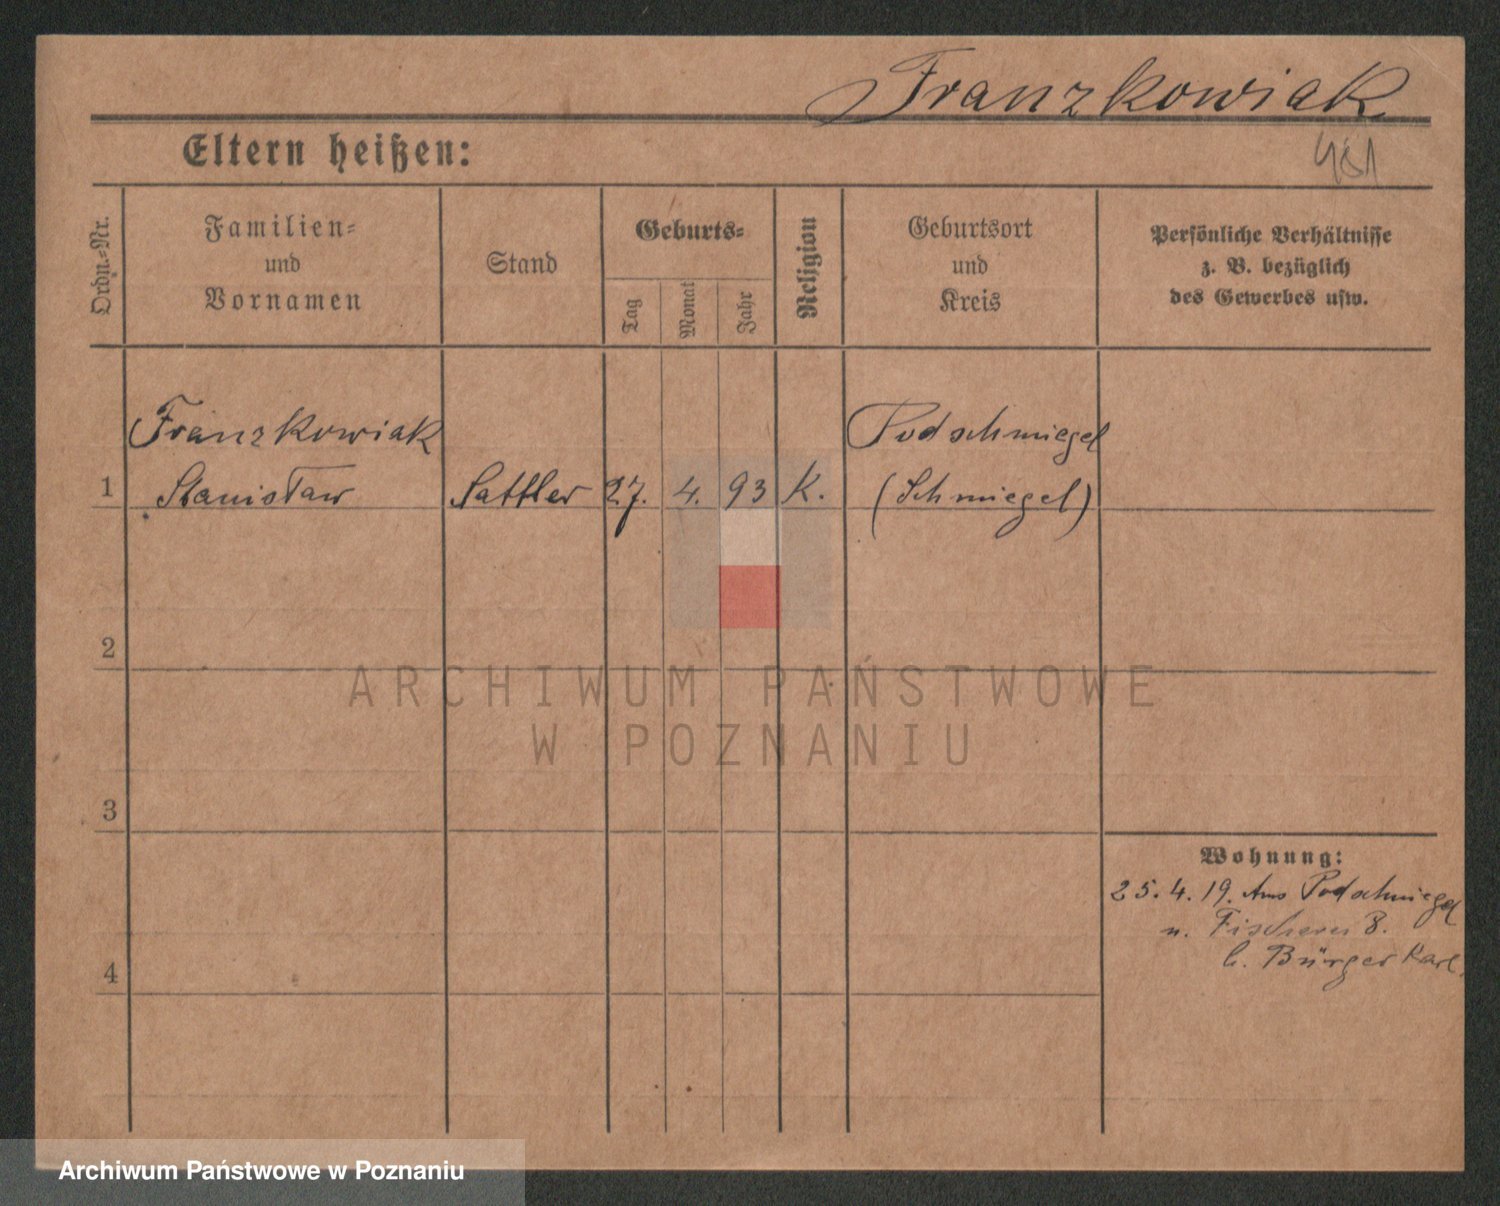 Franzkowiak
Eltern heißen:
Ordn.-Nr.
Familien-
und
Vornamen
Stand
Geburts-
Tag
Monat
Jahr
Religion
Geburtsort
und
Kreis
Persönliche Verhältnisse
z. B. bezüglich
des Gewerbes usw.
Franzkowiak
Stanisław
1
Sattler
27.
4.
93
K.
Podschmiegel
(Schmiegel)
2
3
4
Wohnung:
25.4.19. Aus Podschmiegel
n. Fischerei 8.
b. Bürger Karl.
ARCHIWUM PAŃSTWOWE
W POZNANIU
Archiwum Państwowe w Poznaniu